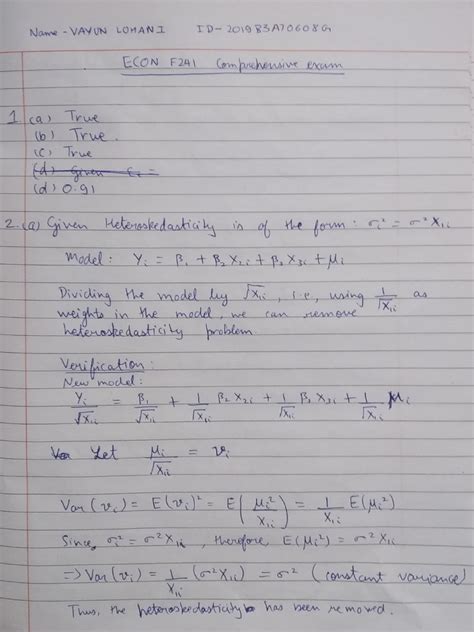 Name - VAYUN LOHANI ID- 2019B3A70608G
ECON F241 Comprehensive exam
1 (a) True
(b) True.
(c) True
(d) Given
(d) 0.91
2.(a) Given Heteroskedasticity is of the form: σi² = σ²X1i
Model: Yi = β1 + β2 X2i + β3 X3i + μi
Dividing the model by √X1i, i.e., using 1/√X1i as
weights in the model, we can remove
heteroskedasticity problem.
Verification:
New model:
Yi/√X1i = β1/√X1i + 1/√X1i β2 X2i + 1/√X1i β3 X3i + 1/√X1i μi
Let μi/√X1i = vi
Var(vi) = E(vi)² = E(μi²/X1i) = 1/X1i E(μi²)
Since, σi² = σ²X1i, therefore, E(μi²) = σ²X1i
⇒ Var(vi) = 1/X1i (σ²X1i) = σ² (constant variance)
Thus, the heteroskedasticity has been removed.